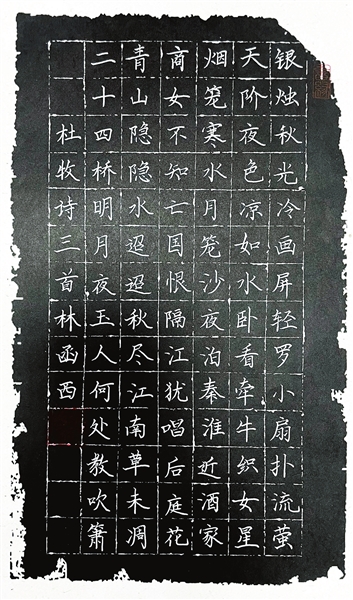 银烛秋光冷画屏轻罗小扇扑流萤
天阶夜色凉如水卧看牵牛织女星
烟笼寒水月笼沙夜泊秦淮近酒家
商女不知亡国恨隔江犹唱后庭花
青山隐隐水迢迢秋尽江南草未凋
二十四桥明月夜玉人何处教吹箫
杜牧诗三首林函西